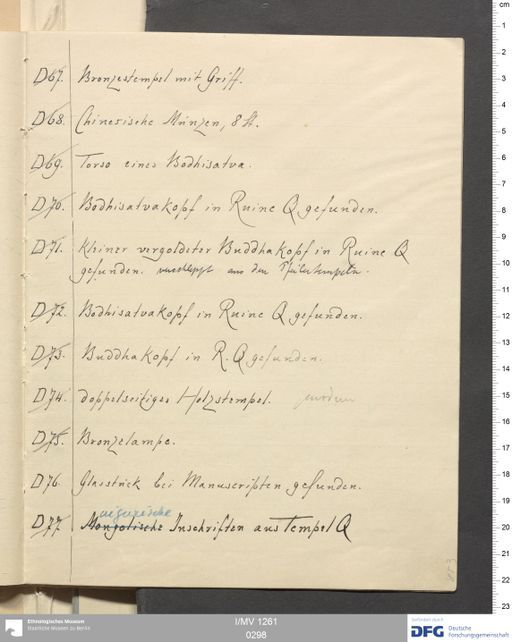 D67. Bronzestempel mit Griff.
D68. Chinesische Münzen, 8 St.
D69. Torso eines Bodhisatva.
D70. Bodhisatvakopf in Ruine Q gefunden.
D71. Kleiner vergoldeter Buddhakopf in Ruine Q
gefunden. verschleppt aus den Pfeilertempeln.
D72. Bodhisatvakopf in Ruine Q gefunden.
D73. Buddhakopf in R. Q gefunden.
D74. Doppelseitiges Holzstempel. modern
D75. Bronzelampe.
D76. Glasstück bei Manuscripten gefunden.
uigurische
D77. Mongolische Inschriften aus Tempel Q
cm
1
2
3
4
5
6
7
8
9
10
11
12
13
14
15
16
17
18
19
20
21
22
23
Ethnologisches Museum
Staatliche Museen zu Berlin
I/MV 1261
0298
Gefördert durch
DFG Deutsche
Forschungsgemeinschaft